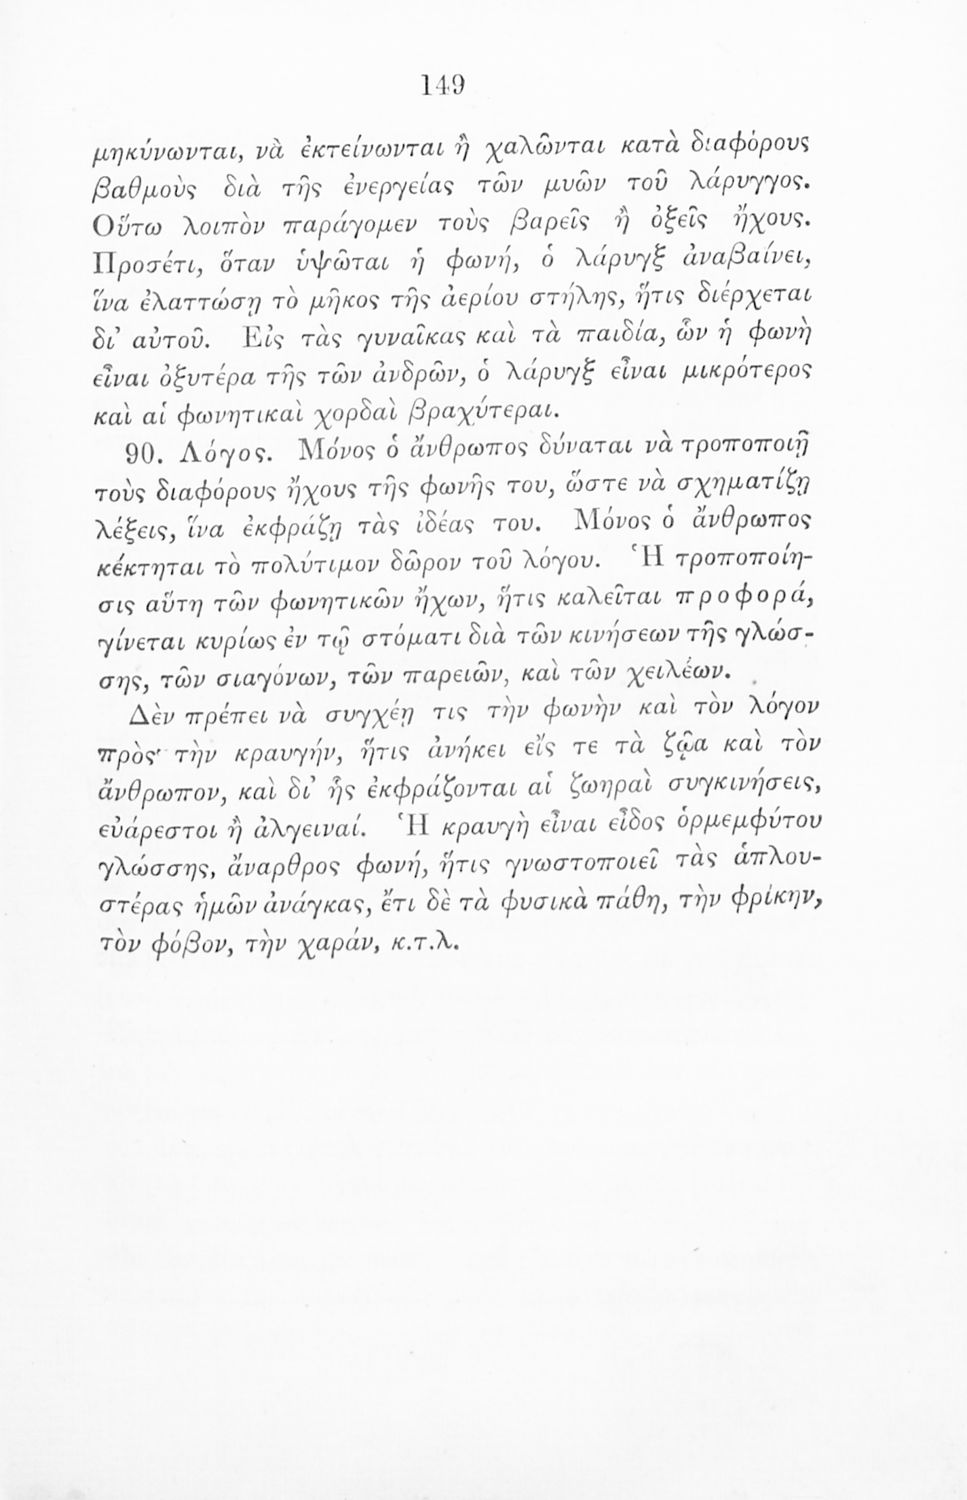 149
μηκύνωνται, νὰ ἐκτείνωνται ἢ χαλῶνται κατὰ διαφόρους
βαθμοὺς διὰ τῆς ἐνεργείας τῶν μυῶν τοῦ λάρυγγος.
Οὕτω λοιπὸν παράγομεν τοὺς βαρεῖς ἢ ὀξεῖς ἤχους.
Προσέτι, ὅταν ὑψῶται ἡ φωνή, ὁ λάρυγξ ἀναβαίνει,
ἵνα ἐλαττώσῃ τὸ μῆκος τῆς ἀερίου στήλης, ἥτις διέρχεται
δι’ αὐτοῦ. Εἰς τὰς γυναῖκας καὶ τὰ παιδία, ὧν ἡ φωνὴ
εἶναι ὀξυτέρα τῆς τῶν ἀνδρῶν, ὁ λάρυγξ εἶναι μικρότερος
καὶ αἱ φωνητικαὶ χορδαὶ βραχύτεραι.
90. Λόγος. Μόνος ὁ ἄνθρωπος δύναται νὰ τροποποιῇ
τοὺς διαφόρους ἤχους τῆς φωνῆς του, ὥστε νὰ σχηματίζῃ
λέξεις, ἵνα ἐκφράζῃ τὰς ἰδέας του. Μόνος ὁ ἄνθρωπος
κέκτηται τὸ πολύτιμον δῶρον τοῦ λόγου. Ἡ τροποποίη-
σις αὕτη τῶν φωνητικῶν ἤχων, ἥτις καλεῖται προφορά,
γίνεται κυρίως ἐν τῷ στόματι διὰ τῶν κινήσεων τῆς γλώσ-
σης, τῶν σιαγόνων, τῶν παρειῶν, καὶ τῶν χειλέων.
Δὲν πρέπει νὰ συγχέῃ τις τὴν φωνὴν καὶ τὸν λόγον
πρὸς τὴν κραυγήν, ἥτις ἀνήκει εἴς τε τὰ ζῷα καὶ τὸν
ἄνθρωπον, καὶ δι’ ἧς ἐκφράζονται αἱ ζωηραὶ συγκινήσεις,
εὐάρεστοι ἢ ἀλγειναί. Ἡ κραυγὴ εἶναι εἶδος ὁρμεμφύτου
γλώσσης, ἄναρθρος φωνή, ἥτις γνωστοποιεῖ τὰς ἁπλου-
στέρας ἡμῶν ἀνάγκας, ἔτι δὲ τὰ φυσικὰ πάθη, τὴν φρίκην,
τὸν φόβον, τὴν χαράν, κ.τ.λ.